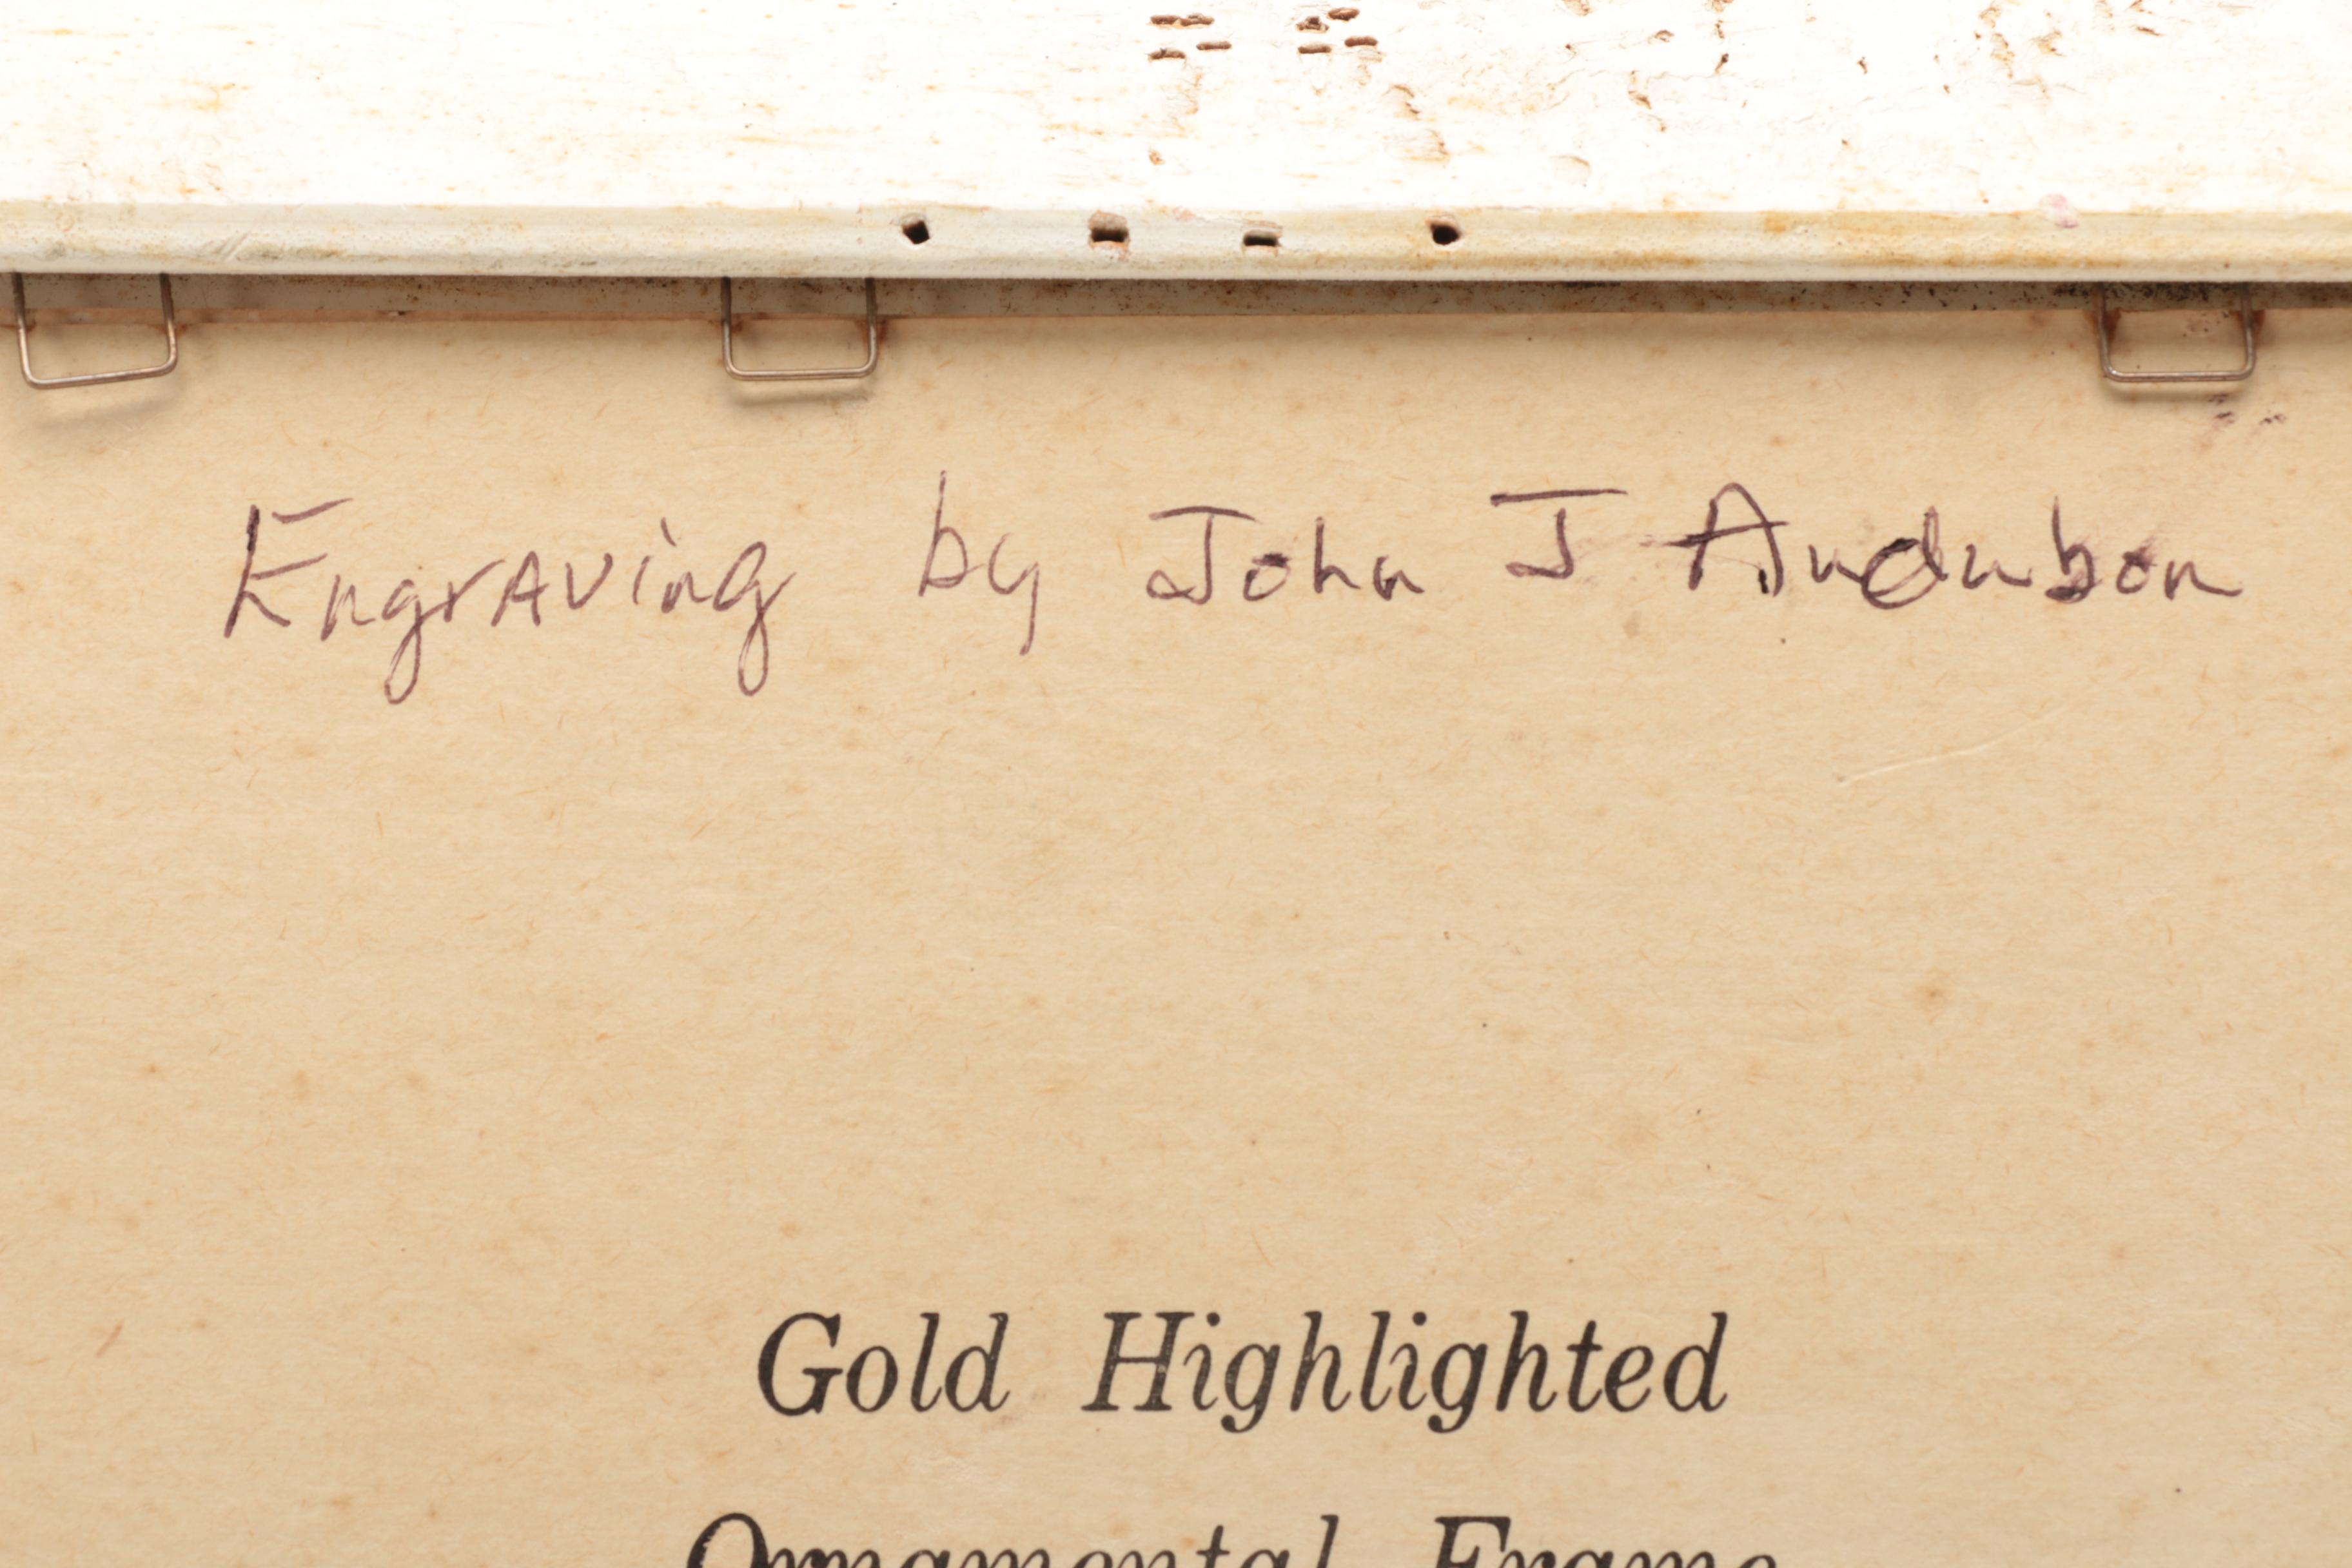 Engraving by John J Audubon
Gold Highlighted
Ornamental Frame